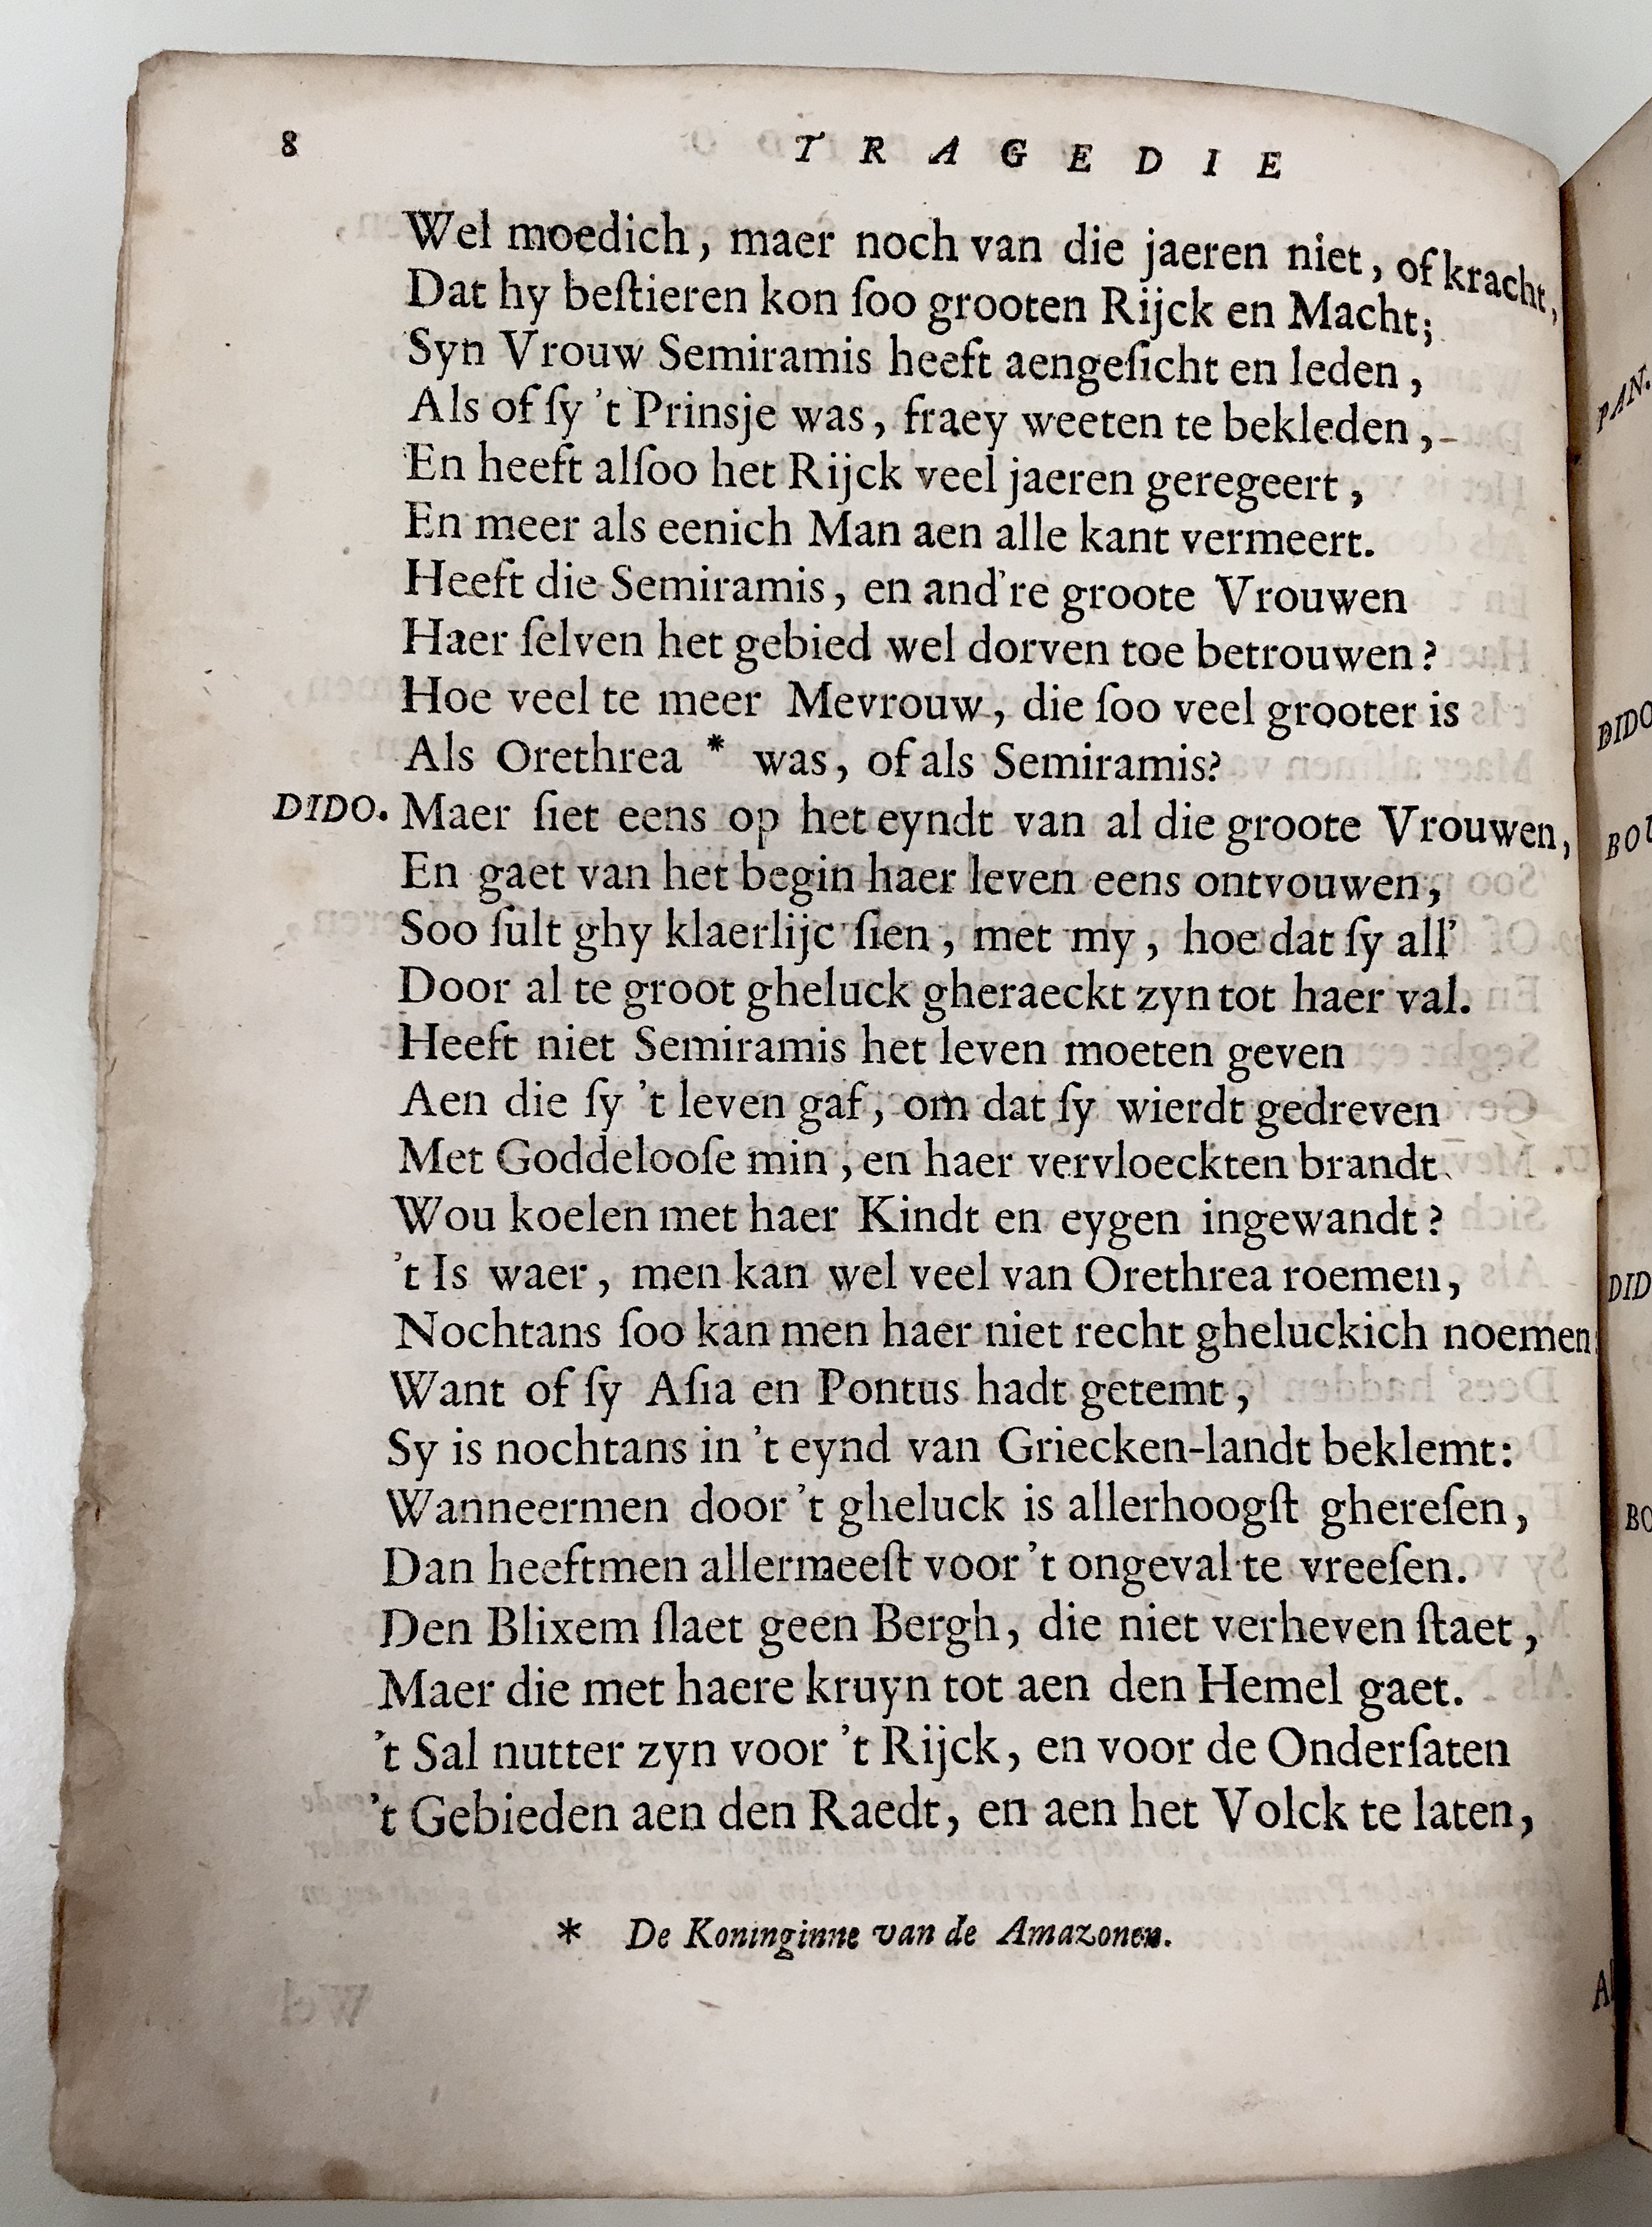 8 TRAGEDIE
Wel moedich, maer noch van die jaeren niet, of kracht,
Dat hy beſtieren kon ſoo grooten Rijck en Macht;
Syn Vrouw Semiramis heeft aengeſicht en leden,
Als of ſy 't Prinsje was, fraey weeten te bekleden,
En heeft alſoo het Rijck veel jaeren geregeert,
En meer als eenich Man aen alle kant vermeert.
Heeft die Semiramis, en and're groote Vrouwen
Haer ſelven het gebied wel dorven toe betrouwen?
Hoe veel te meer Mevrouw, die ſoo veel grooter is
Als Orethrea * was, of als Semiramis?
DIDO. Maer ſiet eens op het eyndt van al die groote Vrouwen,
En gaet van het begin haer leven eens ontvouwen,
Soo ſult ghy klaerlijc ſien, met my, hoe dat ſy all'
Door al te groot gheluck gheraeckt zyn tot haer val.
Heeft niet Semiramis het leven moeten geven
Aen die ſy 't leven gaf, om dat ſy wierdt gedreven
Met Goddelooſe min, en haer vervloeckten brandt
Wou koelen met haer Kindt en eygen ingewandt?
't Is waer, men kan wel veel van Orethrea roemen,
Nochtans ſoo kan men haer niet recht gheluckich noemen
Want of ſy Aſia en Pontus hadt getemt,
Sy is nochtans in 't eynd van Griecken-landt beklemt:
Wanneermen door 't gheluck is allerhoogſt ghereſen,
Dan heeftmen allermeeſt voor 't ongeval te vreeſen.
Den Blixem ſlaet geen Bergh, die niet verheven ſtaet,
Maer die met haere kruyn tot aen den Hemel gaet.
't Sal nutter zyn voor 't Rijck, en voor de Onderſaten
't Gebieden aen den Raedt, en aen het Volck te laten,
* De Koninginne van de Amazonen.
PAN.
DIDO
BOU
DID
BO